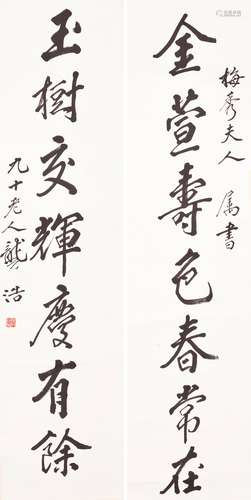 梅秀夫人 属書
金萱壽色春常在
玉樹交輝慶有餘
九十老人龔浩